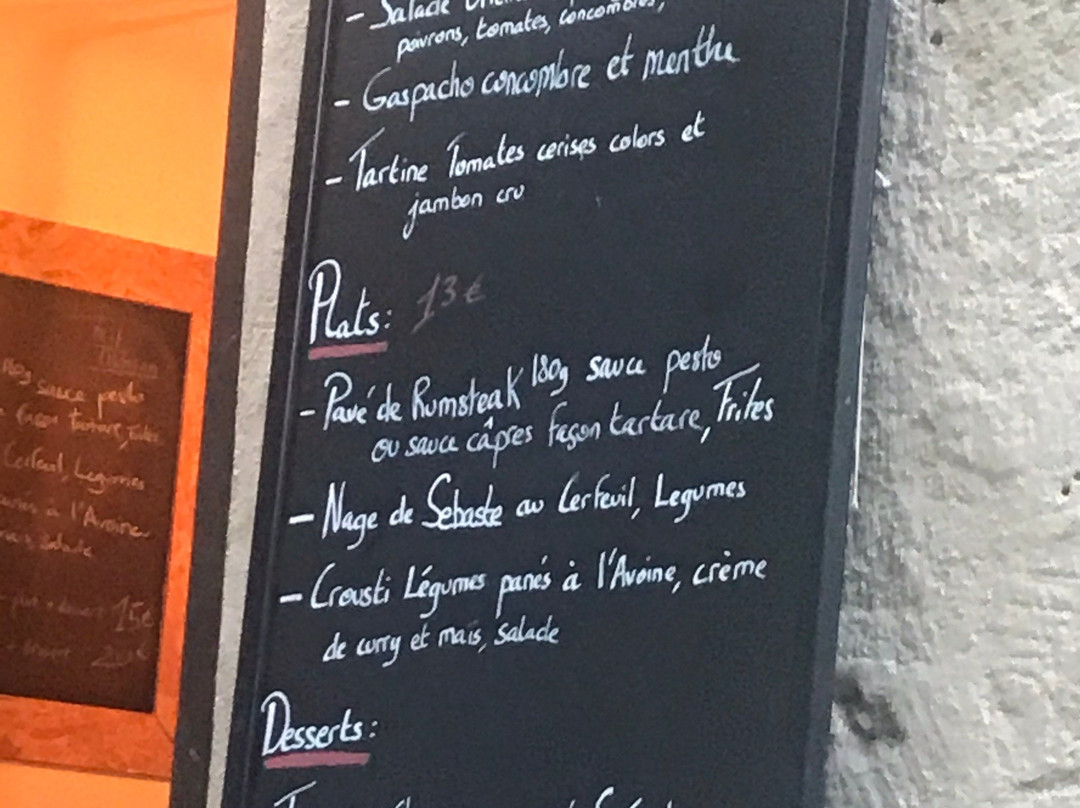 - Salade
poivrons, tomates, concombres,
- Gaspacho concombre et menthe
- Tartine Tomates cerises colors et
jambon cru
Plats: 13€
- Pavé de Rumsteak 180g sauce pesto
ou sauce câpres façon tartare, Frites
- Nage de Sebaste au Cerfeuil, Legumes
- Crousti Légumes panés à l'Avoine, crème
de curry et maïs, Salade
Desserts:
180g sauce pesto
façon tartare,
Cerfeuil, Legumes
à l'Avoine
Salade
15€